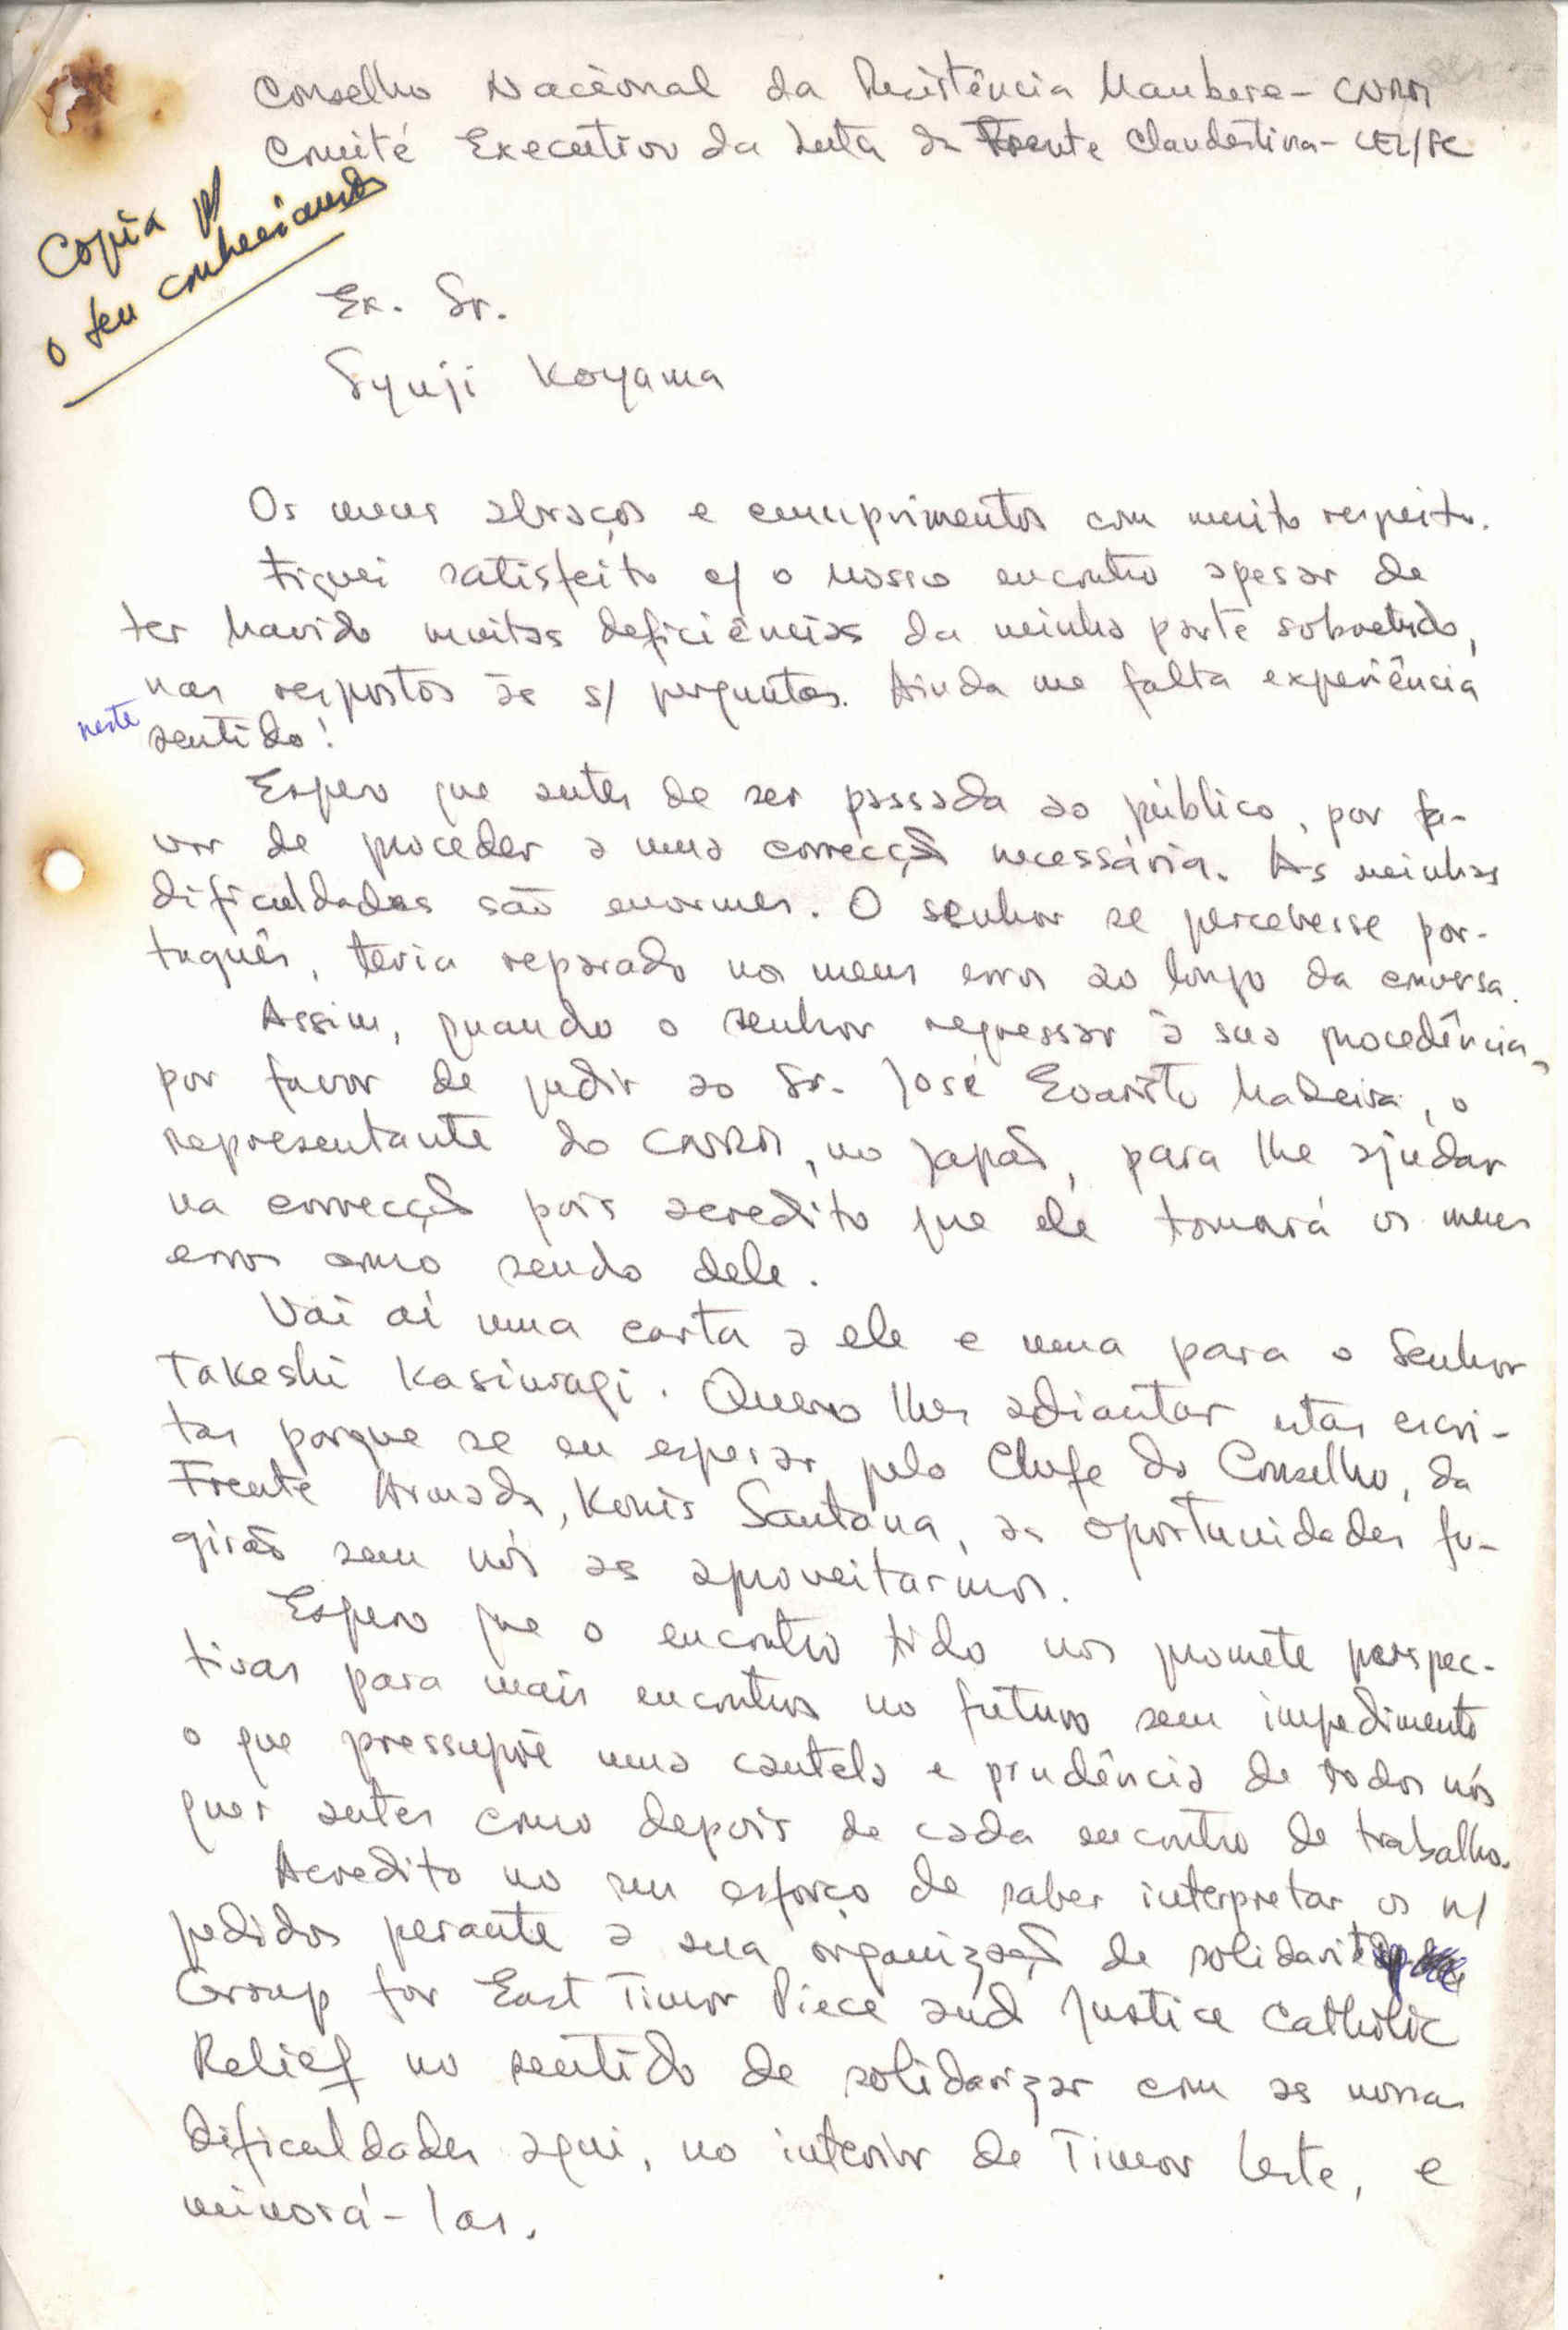 Conselho Nacional da Resistência Maubere - CNRM
Comité Executivo da Luta da Frente Clandestina - CEL/FC
Copia p/
o teu conhecimento
Ex. Sr.
Syuji Koyama
Os meus abraços e cumprimentos com muito respeito.
Fiquei satisfeito c/ o nosso encontro apesar de
ter havido muitas deficiências da minha parte sobretudo,
nas respostas às s/ perguntas. Ainda me falta experiência
neste sentido!
Espero que antes de ser passada ao público, por fa-
vor de proceder a uma correcção necessária. As minhas
dificuldades são enormes. O senhor se percebesse por-
tuguês, teria reparado nos meus erros ao longo da conversa.
Assim, quando o senhor regressar à sua procedência,
por favor de pedir ao Sr. José Evaristo Madeira, o
representante do CNRM, no Japão, para lhe ajudar
na correcção pois acredito que ele tomará os meus
erros como sendo dele.
Vai aí uma carta a ele e uma para o Senhor
Takeshi Kasiwagi. Quero lhes adiantar estas escri-
tas porque se eu esperar pelo Chefe do Conselho, da
Frente Armada, Konis Santana, as oportunidades fu-
girão sem nós as aproveitarmos.
Espero que o encontro tido nos promete perspec-
tivas para mais encontros no futuro sem impedimento
o que pressupõe uma cautela e prudência de todos nós
quer antes como depois de cada encontro de trabalho.
Acredito no seu esforço de saber interpretar os n/
pedidos perante a sua organização de
Group for East Timor Piece and Justice Catholic
Relief no sentido de solidarizar com as nossas
dificuldades aqui, no interior de Timor Leste, e
minorá-las.